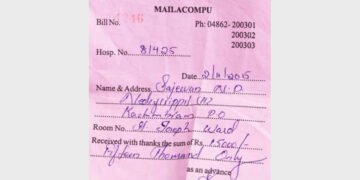 MAILACOMPU
Bill No. 1246 Ph: 04862- 200301
200302
200303
Hosp. No. 81425
Date 2/11/2015
Name & Address, Sajeevan N.P
Kachimbram P.O
Room No. St Joseph Ward
Received with thanks the sum of Rs. 15000/-
Fifteen thousand Only
as an advance